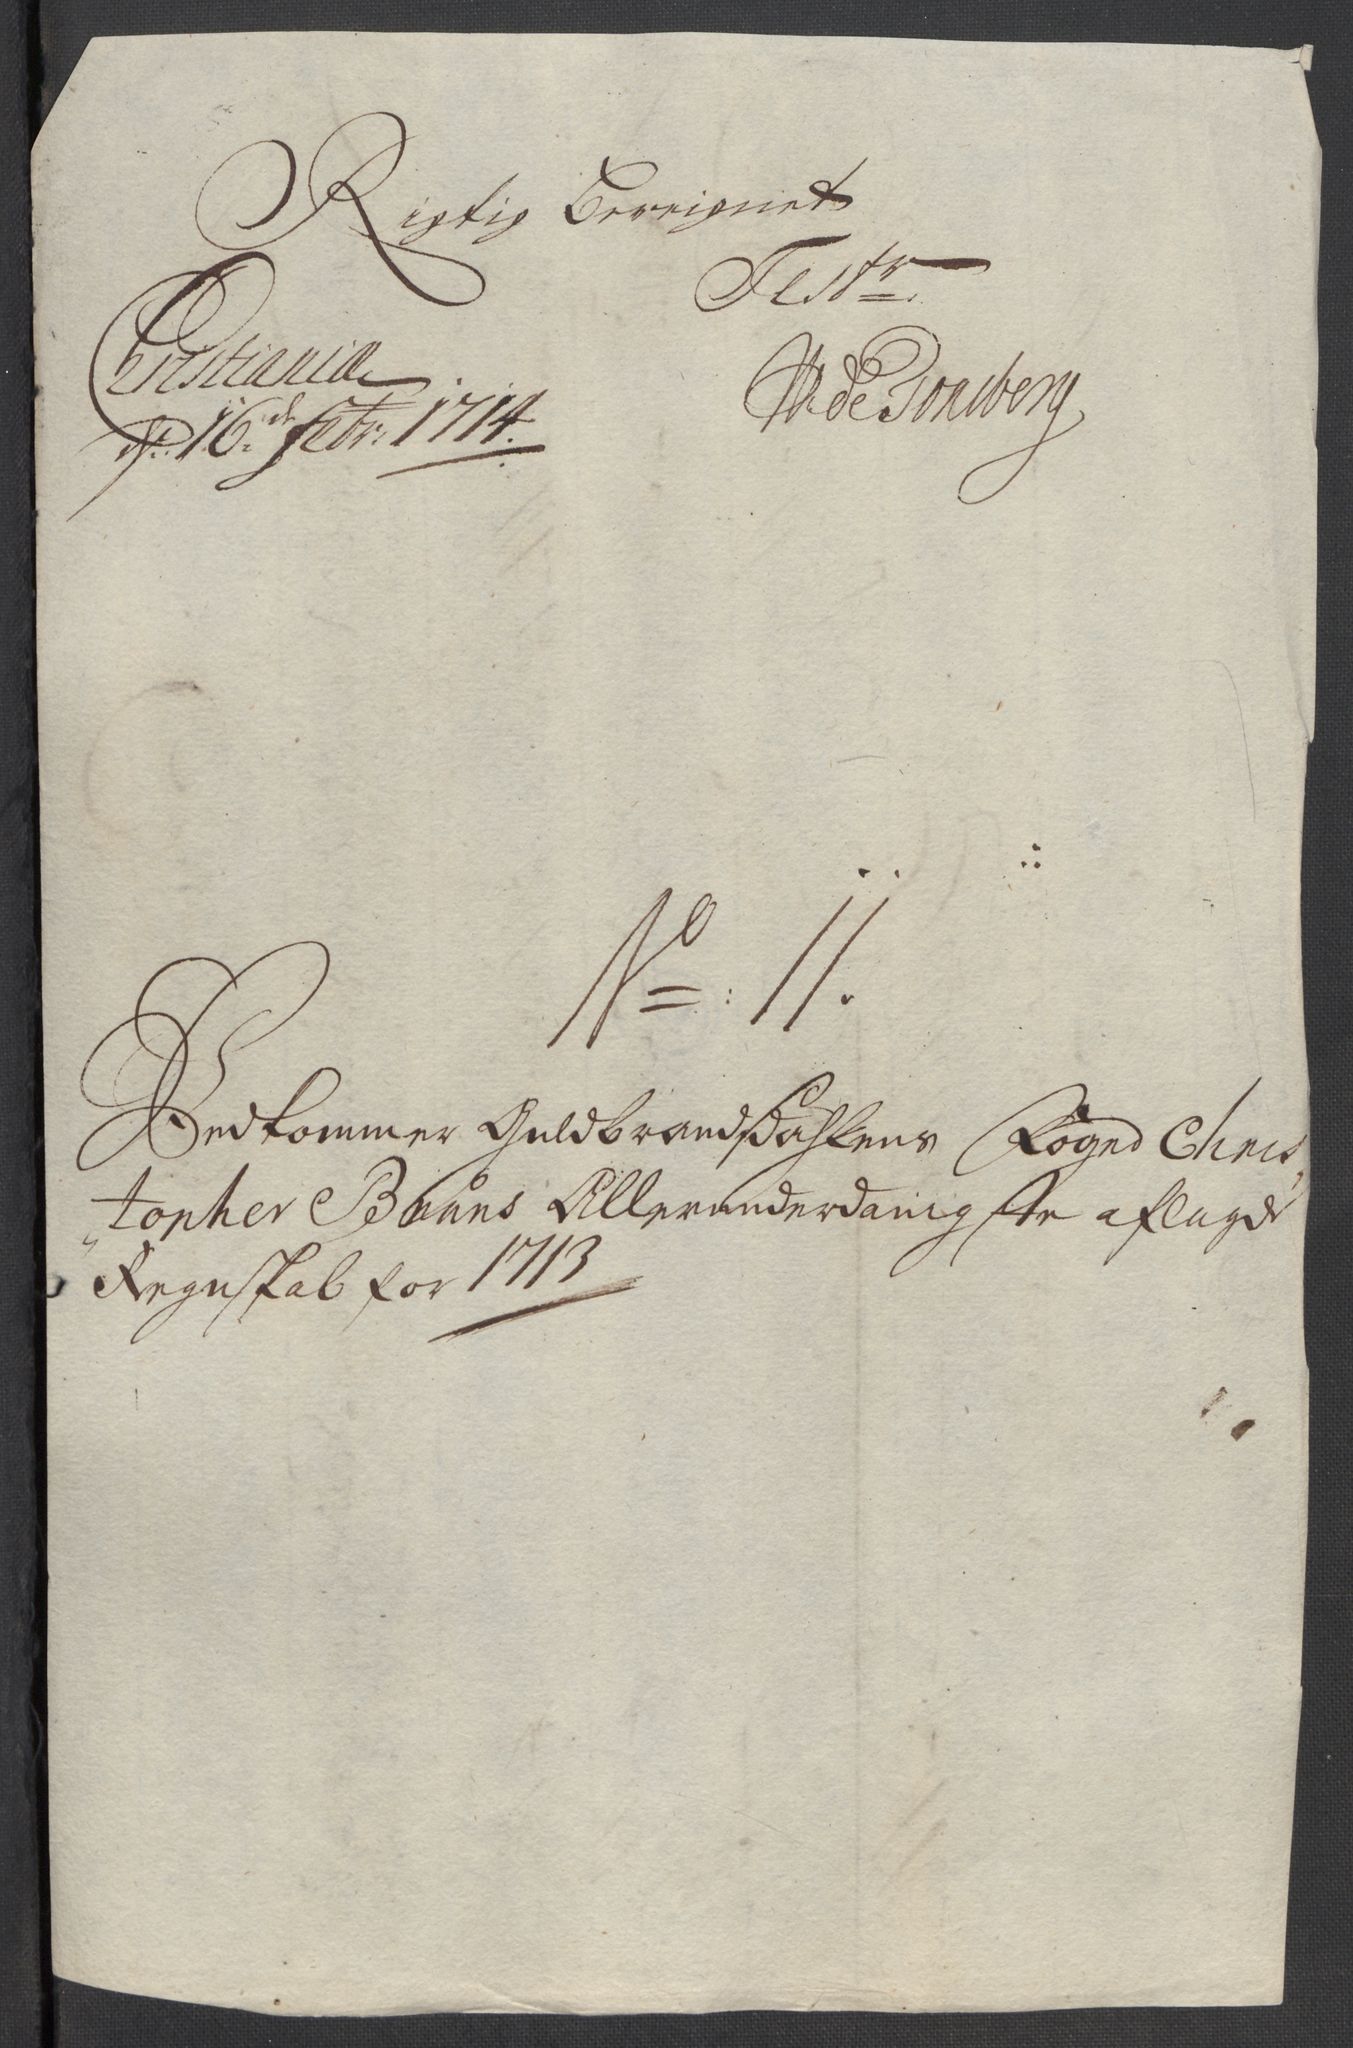 Rigtig bereignet
Testr
Cristiania
d: 16de febr: 1714.
W de Tonsberg
No: 11.
Vedkommer Guldbrandsdahlens Foged Chris
topher Baans Allerunderdanigste aflagde
Regnskab for 1713